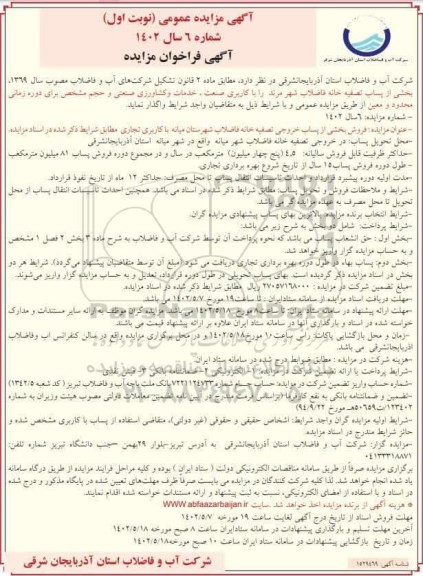 آگهی مزایده عمومی (نوبت اول)
شماره ۶ سال ۱۴۰۲
آگهی فراخوان مزایده
شرکت آب و فاضلاب استان آذربایجان شرقی
شرکت آب و فاضلاب استان آذربایجانشرقی در نظر دارد، مطابق ماده ۲ قانون تشکیل شرکت‌های آب و فاضلاب مصوب سال ۱۳۶۹،
بخشی از پساب تصفیه خانه فاضلاب شهر مرند را با کاربری صنعت، خدمات وکشاورزی صنعتی و حجم مشخص برای دوره زمانی
محدود و معین از طریق مزایده عمومی و با شرایط ذیل به متقاضیان واجد شرایط واگذار نماید.
- شماره مزایده: ۶سال ۱۴۰۲
-عنوان مزایده: فروش بخشی از پساب خروجی تصفیه خانه فاضلاب شهرستان میانه با کاربری تجاری مطابق شرایط ذکر شده در اسناد مزایده.
-محل تحویل پساب: در خروجی تصفیه خانه فاضلاب شهر میانه واقع در شهر میانه استان آذربایجانشرقی
-حداکثر ظرفیت قابل فروش سالیانه: ۴,۵ (پنج چهار میلیون) مترمکعب در سال و در مجموع دوره فروش پساب ۸۱ میلیون مترمکعب
- طول دوره فروش پساب ۱۵ سال از تاریخ شروع بهره برداری تجاری.
-مدت اولیه دوره پیشبرد قرارداد و احداث تاسیسات انتقال پساب تا محل مصرف: حداکثر ۱۲ ماه از تاریخ نفوذ قرارداد.
-شرایط و ملاحظات فروش و تحویل پساب: مطابق شرایط ذکر شده در اسناد می باشد. همچنین احداث تاسیسات انتقال پساب از محل
تحویل تا محل مصرف به عهده مزایده گر می باشد.
-شرایط انتخاب برنده مزایده: بالاترین بهای پساب پیشنهادی مزایده گران.
-شرایط پرداخت: شامل دو بخش به شرح زیر می باشد:
-بخش اول: حق انشعاب پساب می باشد که نحوه پرداخت آن توسط شرکت آب و فاضلاب به شرح ماده ۳ بخش ۲ فصل ۱ مشخص
و به حساب مزایده گزار واریز خواهد شد.
-بخش دوم: پساب بهاء در طول دوره بهره برداری تجاری دریافت می شود (مبلغ آن توسط متقاضیان پیشنهاد می‌گردد). شرایط هر دو
بخش در اسناد مزایده ذکر گردیده است. بهای پساب تحویلی در طول دوره قرارداد، تعدیل و به حساب مزایده گزار واریز می‌شوند.
-مبلغ تضمین شرکت در مزایده: ۲۷۰۵۷۱۶۸۰۰۰ ریال مطابق شرایط ذکر شده در اسناد مزایده می باشد.
-مهلت دریافت اسناد مزایده از سامانه ستاد ایران: تا ساعت ۱۹ مورخ ۱۴۰۲/۵/۷ می باشد.
-مهلت ارائه پیشنهاد در سامانه ستاد ایران: تا ساعت ۸ مورخ ۱۴۰۲/۵/۱۸ می باشد مزایده گران موظف به ارائه سایر مستندات و مدارک
خواسته شده در اسناد و بارگذاری آنها در سامانه ستاد ایران علاوه بر ارائه پیشنهاد قیمت می باشند.
-زمان و محل بازگشایی پاکات: راس ساعت ۱۰ مورخ ۱۴۰۲/۵/۱۸ و در محل برگزاری مزایده واقع در سالن کنفرانس آب وفاضلاب
آذربایجانشرقی می باشد.
-هزینه شرکت در مزایده: مطابق ضوابط درج شده در سامانه ستاد ایران.
-شماره حساب واریز تضمین شرکت در مزایده: حساب جام شماره ۷۲۲۱۱۲۴۷۳۳ بانک ملت بنام آب و فاضلاب تبریز (کد شعبه ۱۳۴۲/۵)
۱۲۳۴۰۲/ت۵۰۶۵۹ه مورخ ۹۴/۹/۲۲)
-شرایط اولیه مزایده گران واجد شرایط: اشخاص حقیقی و حقوقی (غیر دولتی)، متقاضی استفاده از پساب با کاربری مشخص شده و
حائز شرایط مندرج در اسناد مزایده.
-مزایده گزار: شرکت آب و فاضلاب استان آذربایجانشرقی به آدرس تبریز-بلوار ۲۹بهمن -جنب دانشگاه تبریز شماره تلفن:
۰۴۱۳۳۳۱۸۸۷۱
برگزاری مزایده صرفاً از طریق سامانه مناقصات الکترونیکی دولت ( ستاد ایران ) بوده و کلیه مراحل فرایند مزایده از طریق درگاه سامانه
یاد شده انجام خواهد شد. لذا کلیه شرکت کنندگان در مزایده می بایست صرفاً ظرف مهلت‌های تعیین شده در پایگاه مذکور و درج شده
در اسناد و با استفاده از امضای الکترونیکی، نسبت به ثبت پیشنهاد و ارائه مستندات خواسته شده اقدام نمایند.
* هزینه آگهی از برنده مزایده اخذ خواهد شد. سایت www.abfaazarbaijan.ir
مهلت فروش اسناد از تاریخ درج آگهی لغایت ساعت ۱۹ مورخه ۱۴۰۲/۵/۷
آخرین مهلت تسلیم و بارگذاری پیشنهادات در سامانه ستادایران ساعت ۸ صبح مورخه ۱۴۰۲/۵/۱۸
زمان و تاریخ بازگشایی پیشنهادات در سامانه ستاد ایران ساعت ۱۰ صبح مورخه ۱۴۰۲/۵/۱۸
شناسه آگهی: ۱۵۲۹۴۶۹
شرکت آب و فاضلاب استان آذربایجان شرقی